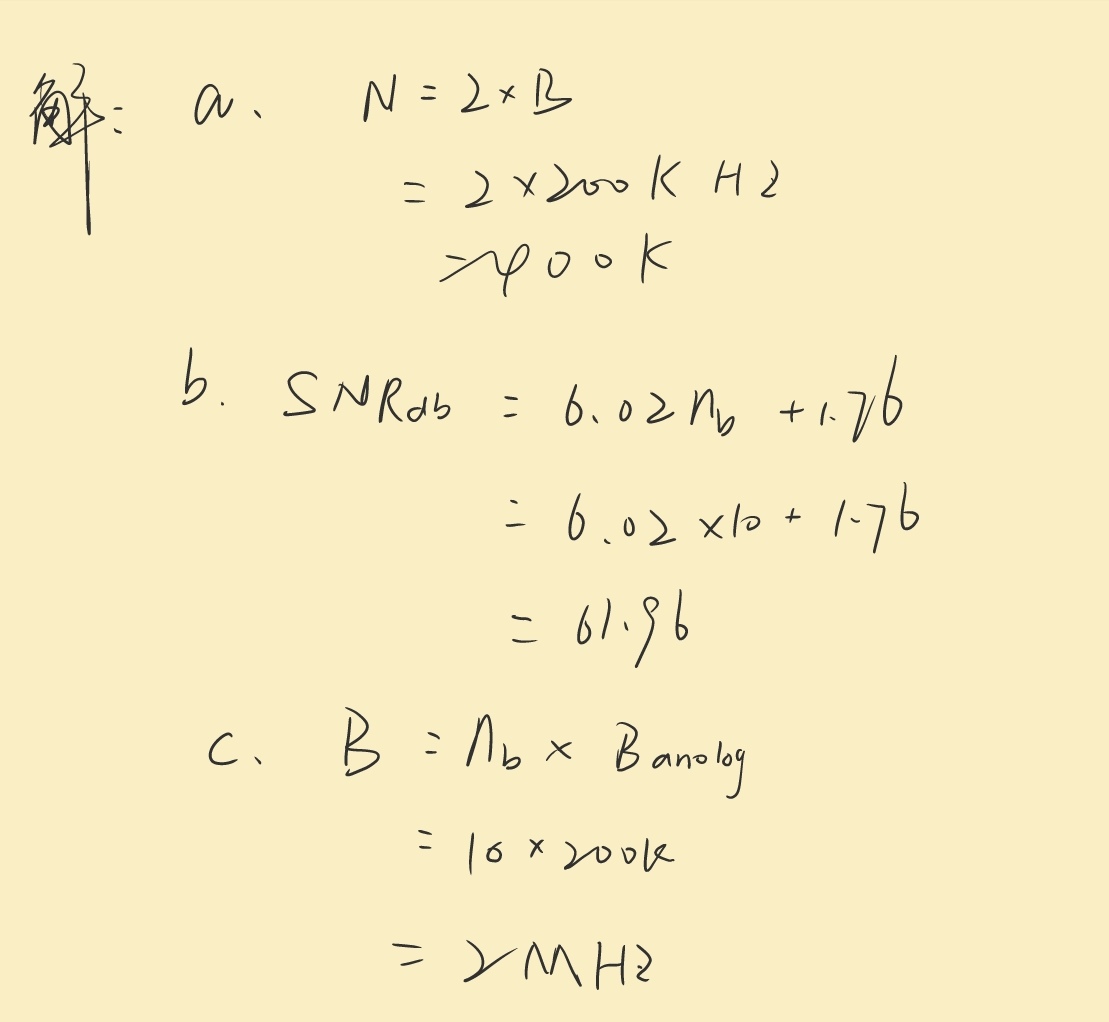 解: a、 N = 2 × B
= 2 × 200 K Hz
= 400 K
b. SNRdb = 6.02 nb + 1.76
= 6.02 × 10 + 1.76
= 61.96
c、 B = nb × Banolog
= 10 × 200k
= 2 MHz